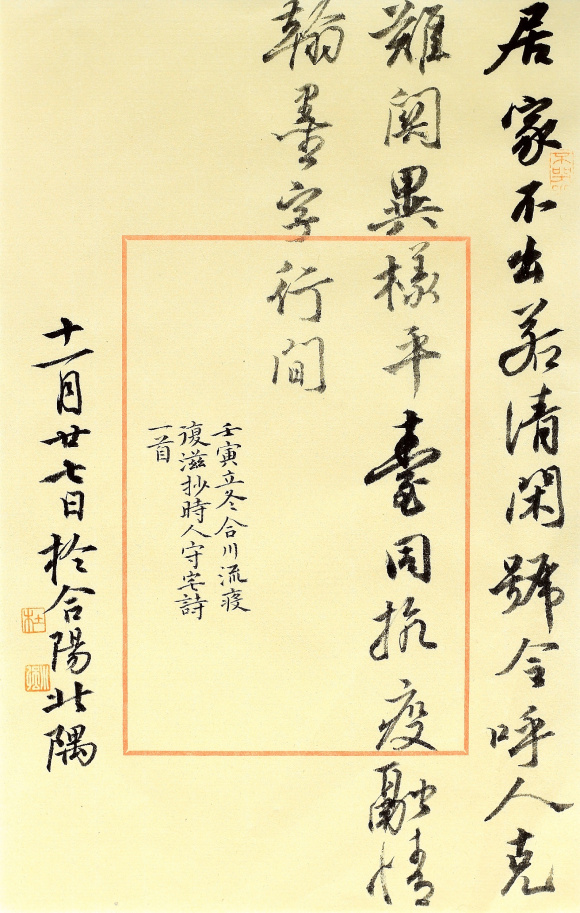 居家不出若清閑號令呼人克
難關異樣平臺同抗疫融情
翰墨字行間
壬寅立冬合川流疫
復滋抄時人守宅詩
一首
十一月廿七日於合陽北隅